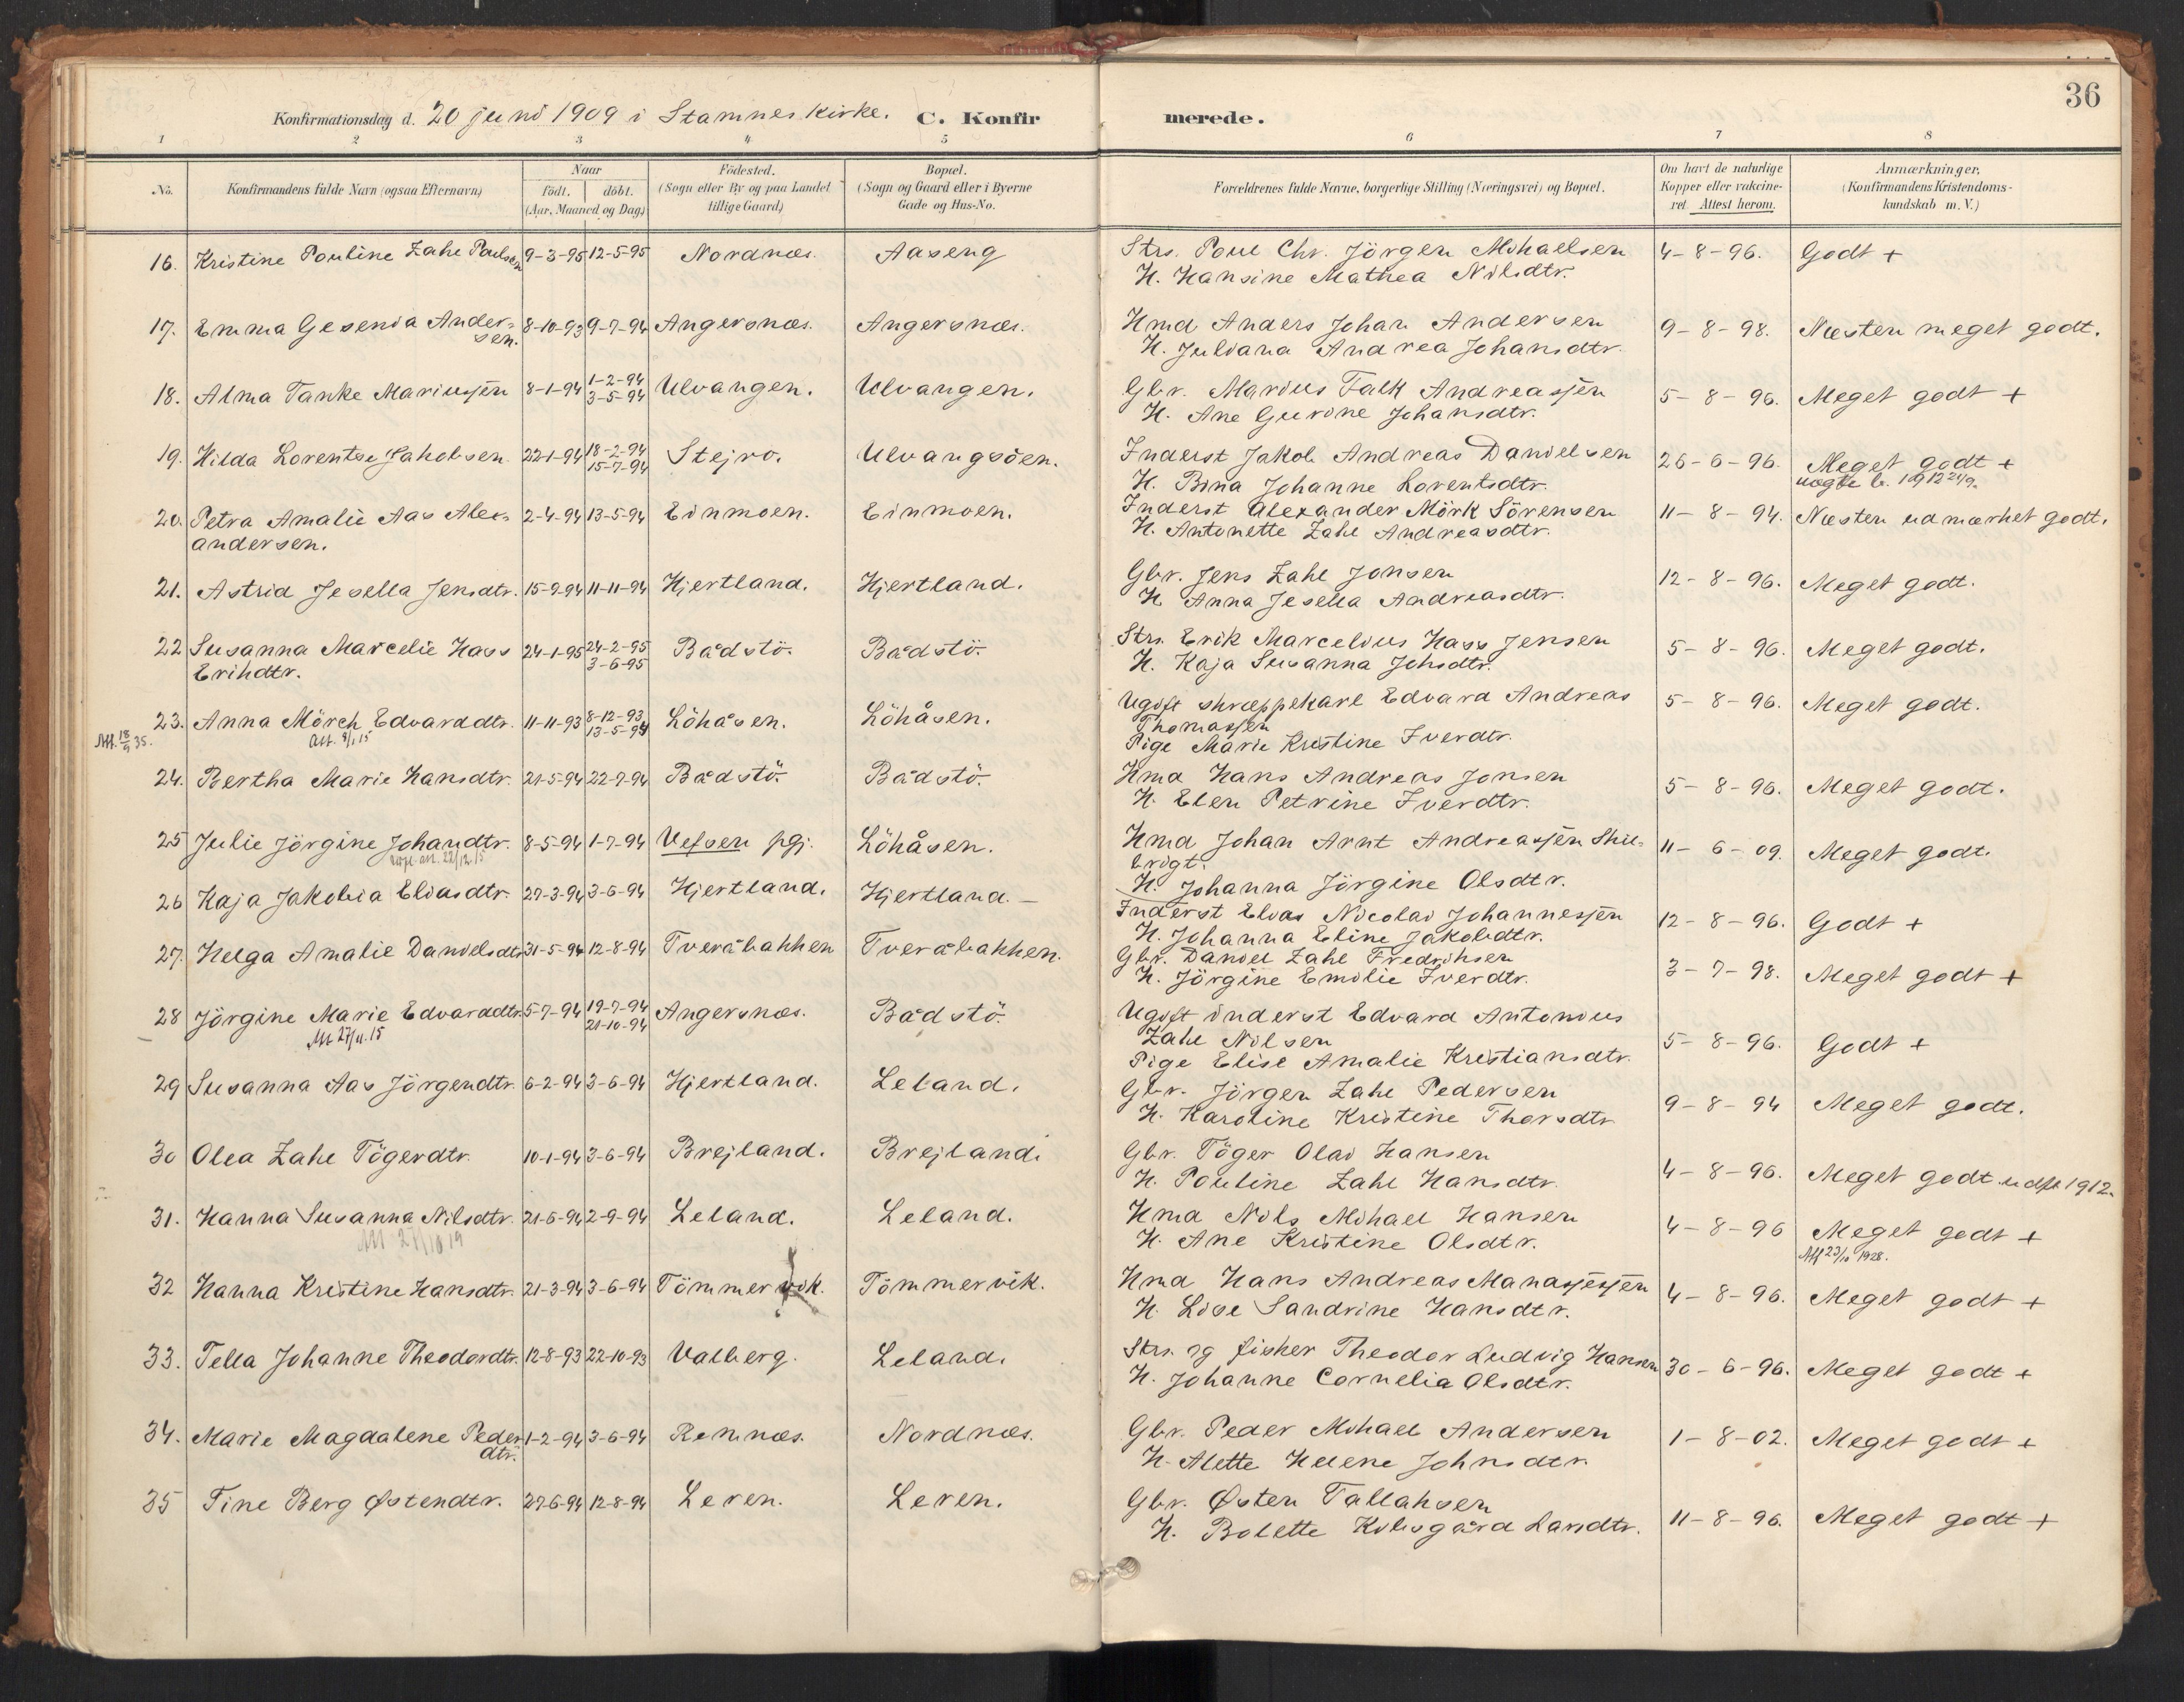 36
Konfirmationsdag d. 20 juni 1909 i Stamnes kirke. C. Konfirmerede.
1 2 3 4 5 6 7 8
No. Konfirmandens fulde Navn (ogsaa Efternavn) Naar födt. döbt. (Aar, Maaned og Dag.) Födested. (Sogn eller By og paa Landet tillige Gaard.) Bopæl. (Sogn og Gaard eller i Byerne Gade og Hus-No. Forældrenes fulde Navne, borgerlige Stilling (Næringsvei) og Bopæl. Om havt de naturlige Kopper eller vakcineret. Attest herom. Anmærkninger, (Konfirmandens Kristendomskundskab m. V.)
16. Kristine Pouline Zahl Poulsen 9-3-95 12-5-95 Nordnæs. Aaseng Strs. Poul Chr. Jörgen Mikaelsen 4-8-96. Godt +
H. Hansine Mathea Nilsdtr.
17. Emma Gesenia Ander- 8-10-93 9-7-94 Angersnæs. Angersnæs. Hmd Anders Johan Andersen 9-8-98. Næsten meget godt.
sen. H. Juliana Andrea Johansdtr.
18. Alma Tanke Mariussen 8-1-94 1-2-94 Ulvangen. Ulvangen. Gbr. Marius Falk Andreassen 5-8-96. Meget godt +
3-5-94 H. Ane Gurine Johansdtr.
19. Hilda Lorentse Jakobsen 22-1-94 18-2-94 Stejro. Ulvangsöen. Inderst Jakob Andreas Danielsen 26-6-96. Meget godt +
15-7-94 H. Bina Johanne Lorentsdtr.
20. Petra Amalie Aas Alex- 2-4-94 13-5-94 Einmoen. Einmoen. Inderst Alexander Mörk Sörensen 11-8-94. Næsten udmærket godt.
andersen. H. Antonette Zahl Andreasdtr.
21. Astrid Jesella Jensdtr. 15-9-94 11-11-94 Hjertland. Hjertland. Gbr. Jens Zahl Jonsen 12-8-96. Meget godt.
H. Anna Jesella Andreasdtr.
22 Susanna Marcelie Hass 24-1-95 24-2-95 Bådstö. Bådstö. Strs. Erik Marcelius Hass Jensen 5-8-96. Meget godt.
Erikdtr. 3-6-95 H. Kaja Susanna Johsdtr.
23. Anna Mörch Edvarddtr. 11-11-93 8-12-93 Löhåsen. Löhåsen. Ugift skræppekarl Edvard Andreas 5-8-96. Meget godt.
Att. 18/9 35. att. 8/1 15 13-5-94 Thomassen
Pige Marie Kristine Iverdtr.
24. Bertha Marie Hansdtr. 21-5-94 22-7-94 Bådstö. Bådstö. Hmd Hans Andreas Jonsen 5-8-96. Meget godt.
H. Elen Petrine Iverdtr.
25 Julie Jörgine Johandtr. 8-5-94 1-7-94 Vefsen pgj. Löhåsen. Hmd Johan Arnt Andreassen Skil- 11-6-09. Meget godt.
brigt.
H. Johanna Jörgine Olsdtr.
26 Kaja Jakobia Eliasdtr. 27-3-94 3-6-94 Hjertland. Hjertland. Inderst Elias Nicolai Johannessen 12-8-96. Godt +
H. Johanna Eline Jakobdtr.
27. Helga Amalie Danielsdtr. 31-5-94 12-8-94 Tveråbakken Tveråbakken. Gbr. Daniel Zahl Fredriksen 3-7-98. Meget godt +
H. Jörgine Emilie Iverdtr.
28 Jörgine Marie Edvarddtr. 5-7-94 19-7-94 Angersnæs. Bådstö. Ugift inderst Edvard Antonius 5-8-96. Godt +
Att 27/11.15 21-10-94 Zahl Nilsen
Pige Elise Amalie Kristiansdtr.
29 Susanna Aas Jörgendtr. 6-2-94 3-6-94 Hjertland. Leland. Gbr. Jörgen Zahl Pedersen 9-8-94 Meget godt.
H. Karoline Kristine Thorsdtr
30 Olea Zahl Tögerdtr. 10-1-94 3-6-94 Brejland. Brejland. Gbr. Töger Olai Hansen 4-8-96. Meget godt. udfl 1912.
H. Pouline Zahl Hansdtr.
31. Hanna Susanna Nilsdtr. 21-6-94 2-9-94 Leland. Leland. Hmd Nils Mikael Hansen 4-8-96 Meget godt +
H. Ane Kristine Olsdtr. Att 23/10 1928.
32 Hanna Kristine Hansdtr. 21-3-94 3-6-94 Tömmervik. Tömmervik. Hmd Hans Andreas Manassessen 4-8-96. Meget godt +
H. Lise Sandrine Hansdtr.
33. Tella Johanne Theodordtr. 12-8-93 22-10-93 Valberg. Leland. Strs. og fisker Theodor Ludvig Hansen 30-6-96. Meget godt +
H. Johanne Cornelia Olsdtr.
34. Marie Magdalene Peder- 1-2-94 3-6-94 Remnæs. Nordnæs. Gbr. Peder Mikael Andersen 1-8-02. Meget godt +
dtr. H. Alette Helene Johnsdtr.
35 Tine Berg Østendtr. 27-6-94 12-8-94 Leren. Leren. Gbr. Østen Tallaksen 11-8-96. Meget godt +
H. Bolette Kvilesgård Larsdtr.